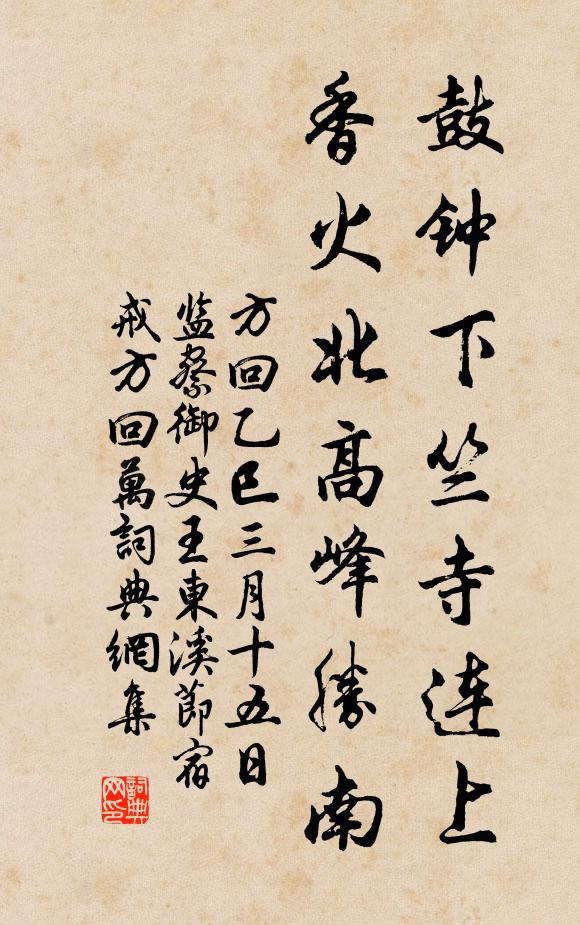 鼓钟下竺寺连上
香火北高峰勝南
方回乙巳三月十五日
监察御史王東溪節宿
戒方回萬詞典網集
詞典網印